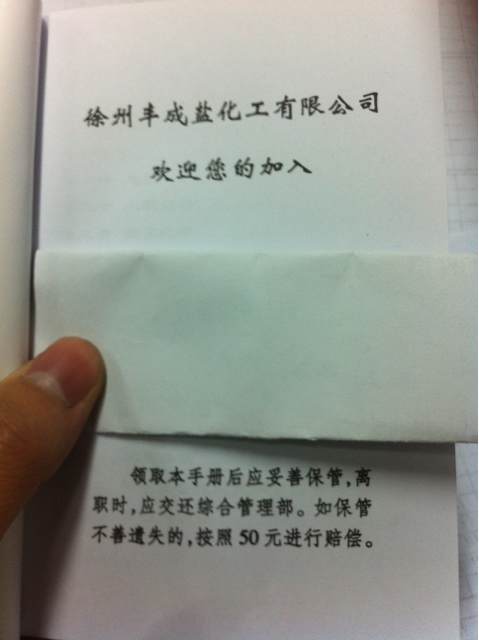 徐州丰成盐化工有限公司
欢迎您的加入
领取本手册后应妥善保管,离
职时,应交还综合管理部。如保管
不善遗失的,按照50元进行赔偿。